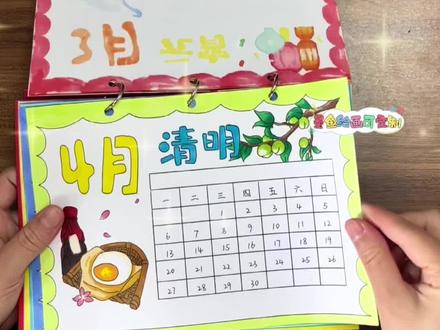 3月
鱼绘画可定制
4月 清明
一 二 三 四 五 六 日
1 2 3 4 5
6 7 8 9 10 11 12
13 14 15 16 17 18 19
20 21 22 23 24 25 26
27 28 29 30